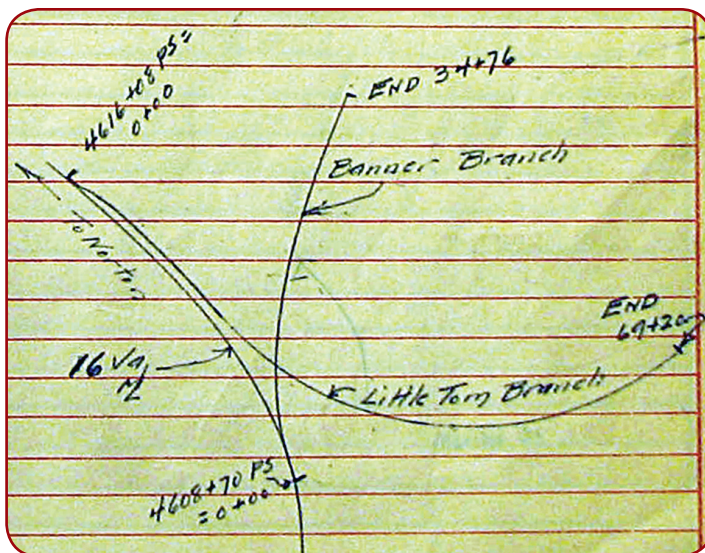 4616+08 PS=
0+00
END 34+76
Banner Branch
To Norton
END
69+20
16 Va
Little Tom Branch
4608+70 PS
=0+00